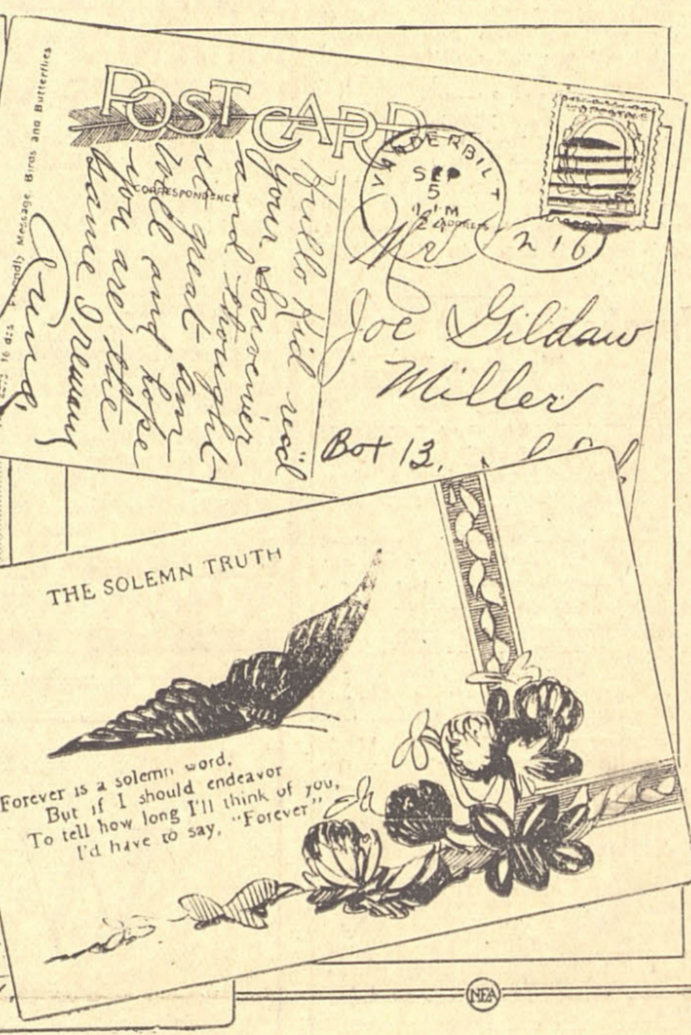 Friendly Message, Birds and Butterflies
POST CARD
CORRESPONDENCE
Hello Kid rec'd
your Souvenier
and thought
it great am
well and hope
you are the
same I remain
VANDERBILT
SEP
5
1 PM
ADDRESS
216
Mr
Joe Gildaw
Miller
Box 13,
THE SOLEMN TRUTH
Forever is a solemn word,
But if I should endeavor
To tell how long I'll think of you,
I'd have to say, "Forever"
NEA